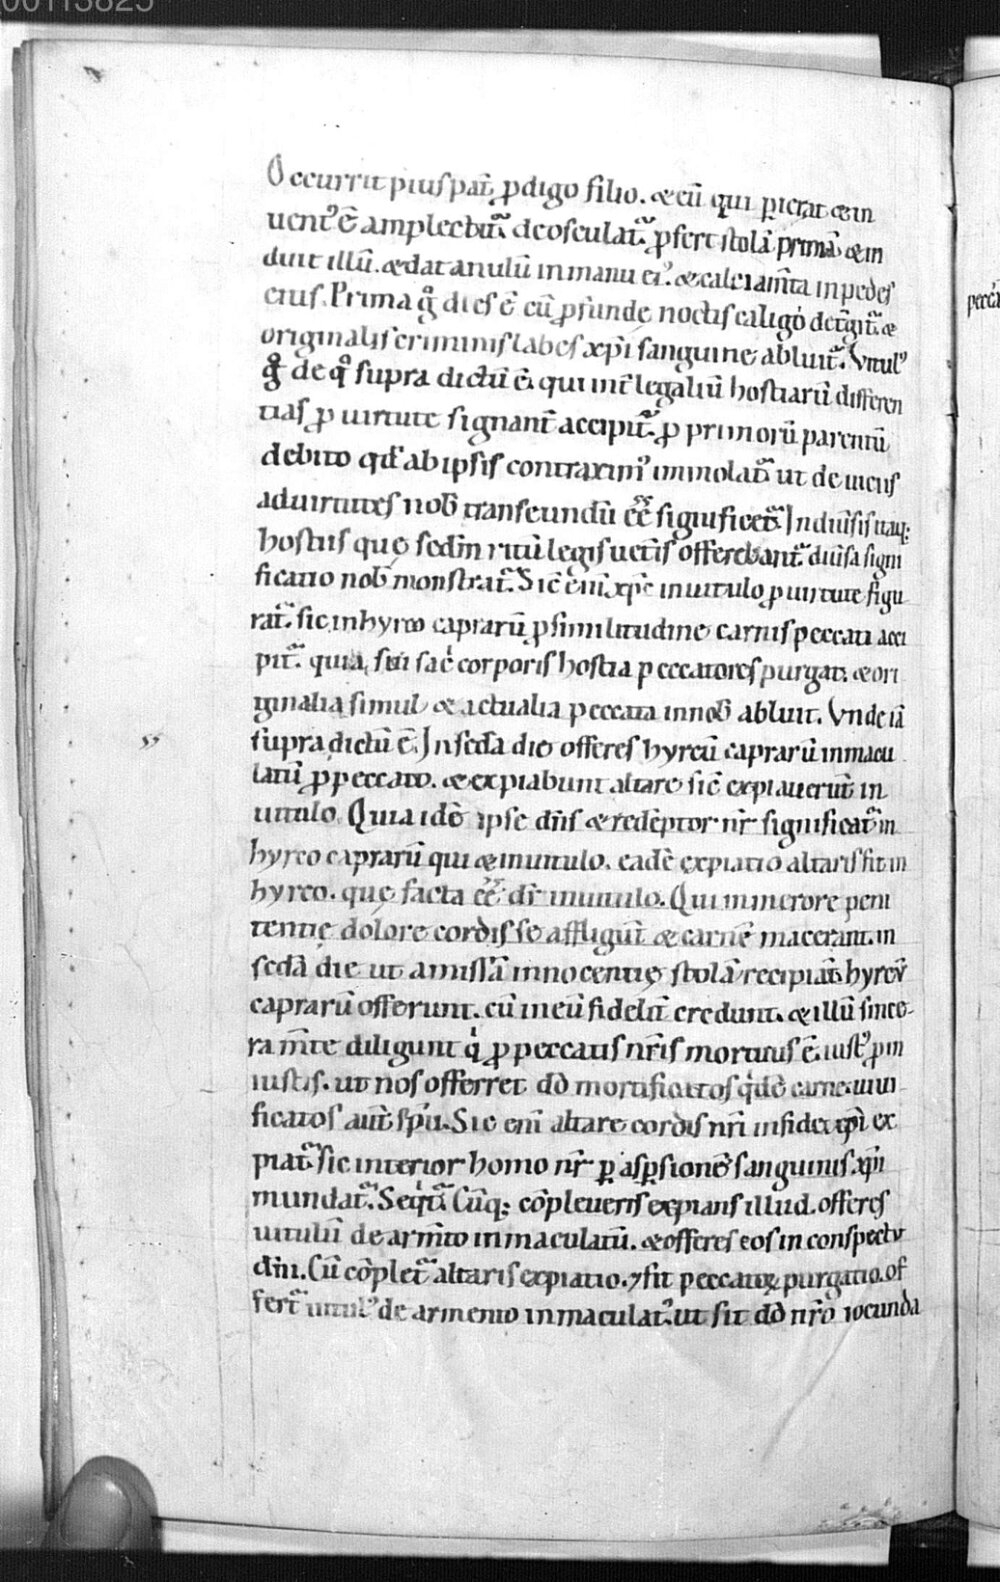 00113825
Occurrit pius pat̄ ꝓdigo filio. & eū qui ꝑierat & in
uentꝰ ē amplectit᷑. deosculat᷑. ꝓfert stolā primā & in
duit illū. & dat anulū in manu eiꝰ. & calciam̄ta in pedes
eius. Prima g̊ dies ē cū ꝓfunde noctis caligo det̄git᷑. &
originalis criminis labes xp̄i sanguine abluit᷑. Vitulꝰ
g̊ de qͦ supra dictū ē. qui int̄ legaliū hostiarū differen
tias ꝓ uirtute signant̄ accipit᷑. ꝓ primorū parentū
debito qđ ab ipsis contraximꝰ immolat᷑. ut de uiciis
ad uirtutes nob̄ transeundū eē̄ significet᷑. In diuīsis itaq;
hostiis quę scđm ritū legis uet̄is offerebant᷑. diuīsa signi
ficatio nob̄ monstrat᷑. Sic̄ enī xp̄c in uitulo ꝓ uirtute figu
rat᷑. sic in hyrco caprarū ꝓ similitudine carnis peccati acci
pit᷑. quia sui sac̄ corporis hostia peccatores purgat. & ori
ginalia simul & actualia peccata in nob̄ abluit. Vnde iā
supra dictū ē. In scđa die offeres hyrcū caprarū inmacu
latū ꝓ peccato. & expiabunt altare sic̄ expiauerūt in
uitulo. Quia idē ipse dn̄s & redēptor nr̄ significat᷑ in
hyrco caprarū qui & in uitulo. eadē expiatio altaris fit in
hyrco. quę facta eē̄ dr̄ in uitulo. Qui in merore peni
tentię dolore cordis se affligūt & carnē macerant. in
scđa die ut amissā innocentię stolā recipiāt hyrcū
caprarū offerunt. cū in eū fidelit̄ credunt. & illū since-
ra m̄te diligunt q̇ ꝓ peccatis nr̄is mortuus ē. iustꝰ ꝓ in
iustis. ut nos offerret dō mortificatos q̇dē carne. uiui
ficatos aut̄ sp̄u. Sic enī altare cordis nr̄i in fide xp̄i ex
piat᷑. sic interior homo nr̄ ꝑ aspersionē sanguinis xp̄i
mundat᷑. Seq̇t᷑. Cūq; cōpleueris expians illud. offeres
uitulū de arm̄to inmaculatū. & offeres eos in conspectu
dn̄i. Cū cōplet᷑ altaris expiatio. ⁊ fit peccatoꝝ purgatio. of
fert᷑ uitulꝰ de armento inmaculatꝰ. ut sit dō nr̄o iocunda